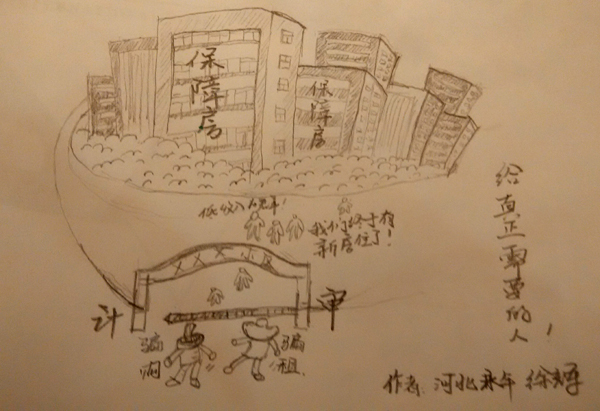 保障房
保障房
低收入
我们终于有
新房住了！
XXX小区
计
审
骗
购
骗
租
给真正需要的人！
作者：河北永年